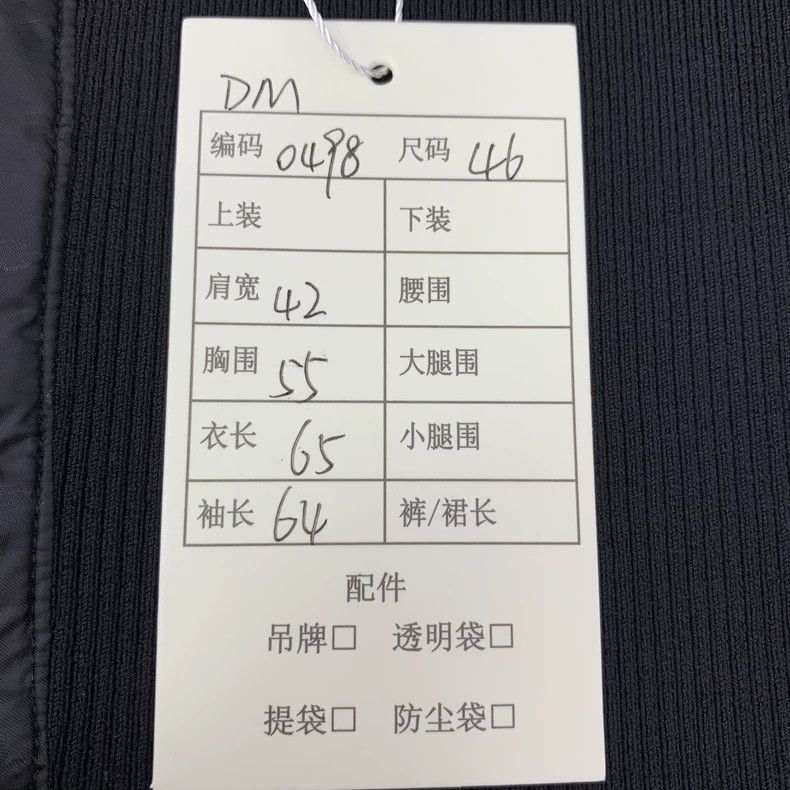 DM
编码 0498 尺码 46
上装 下装
肩宽 42 腰围
胸围 55 大腿围
衣长 65 小腿围
袖长 64 裤/裙长
配件
吊牌□ 透明袋□
提袋□ 防尘袋□